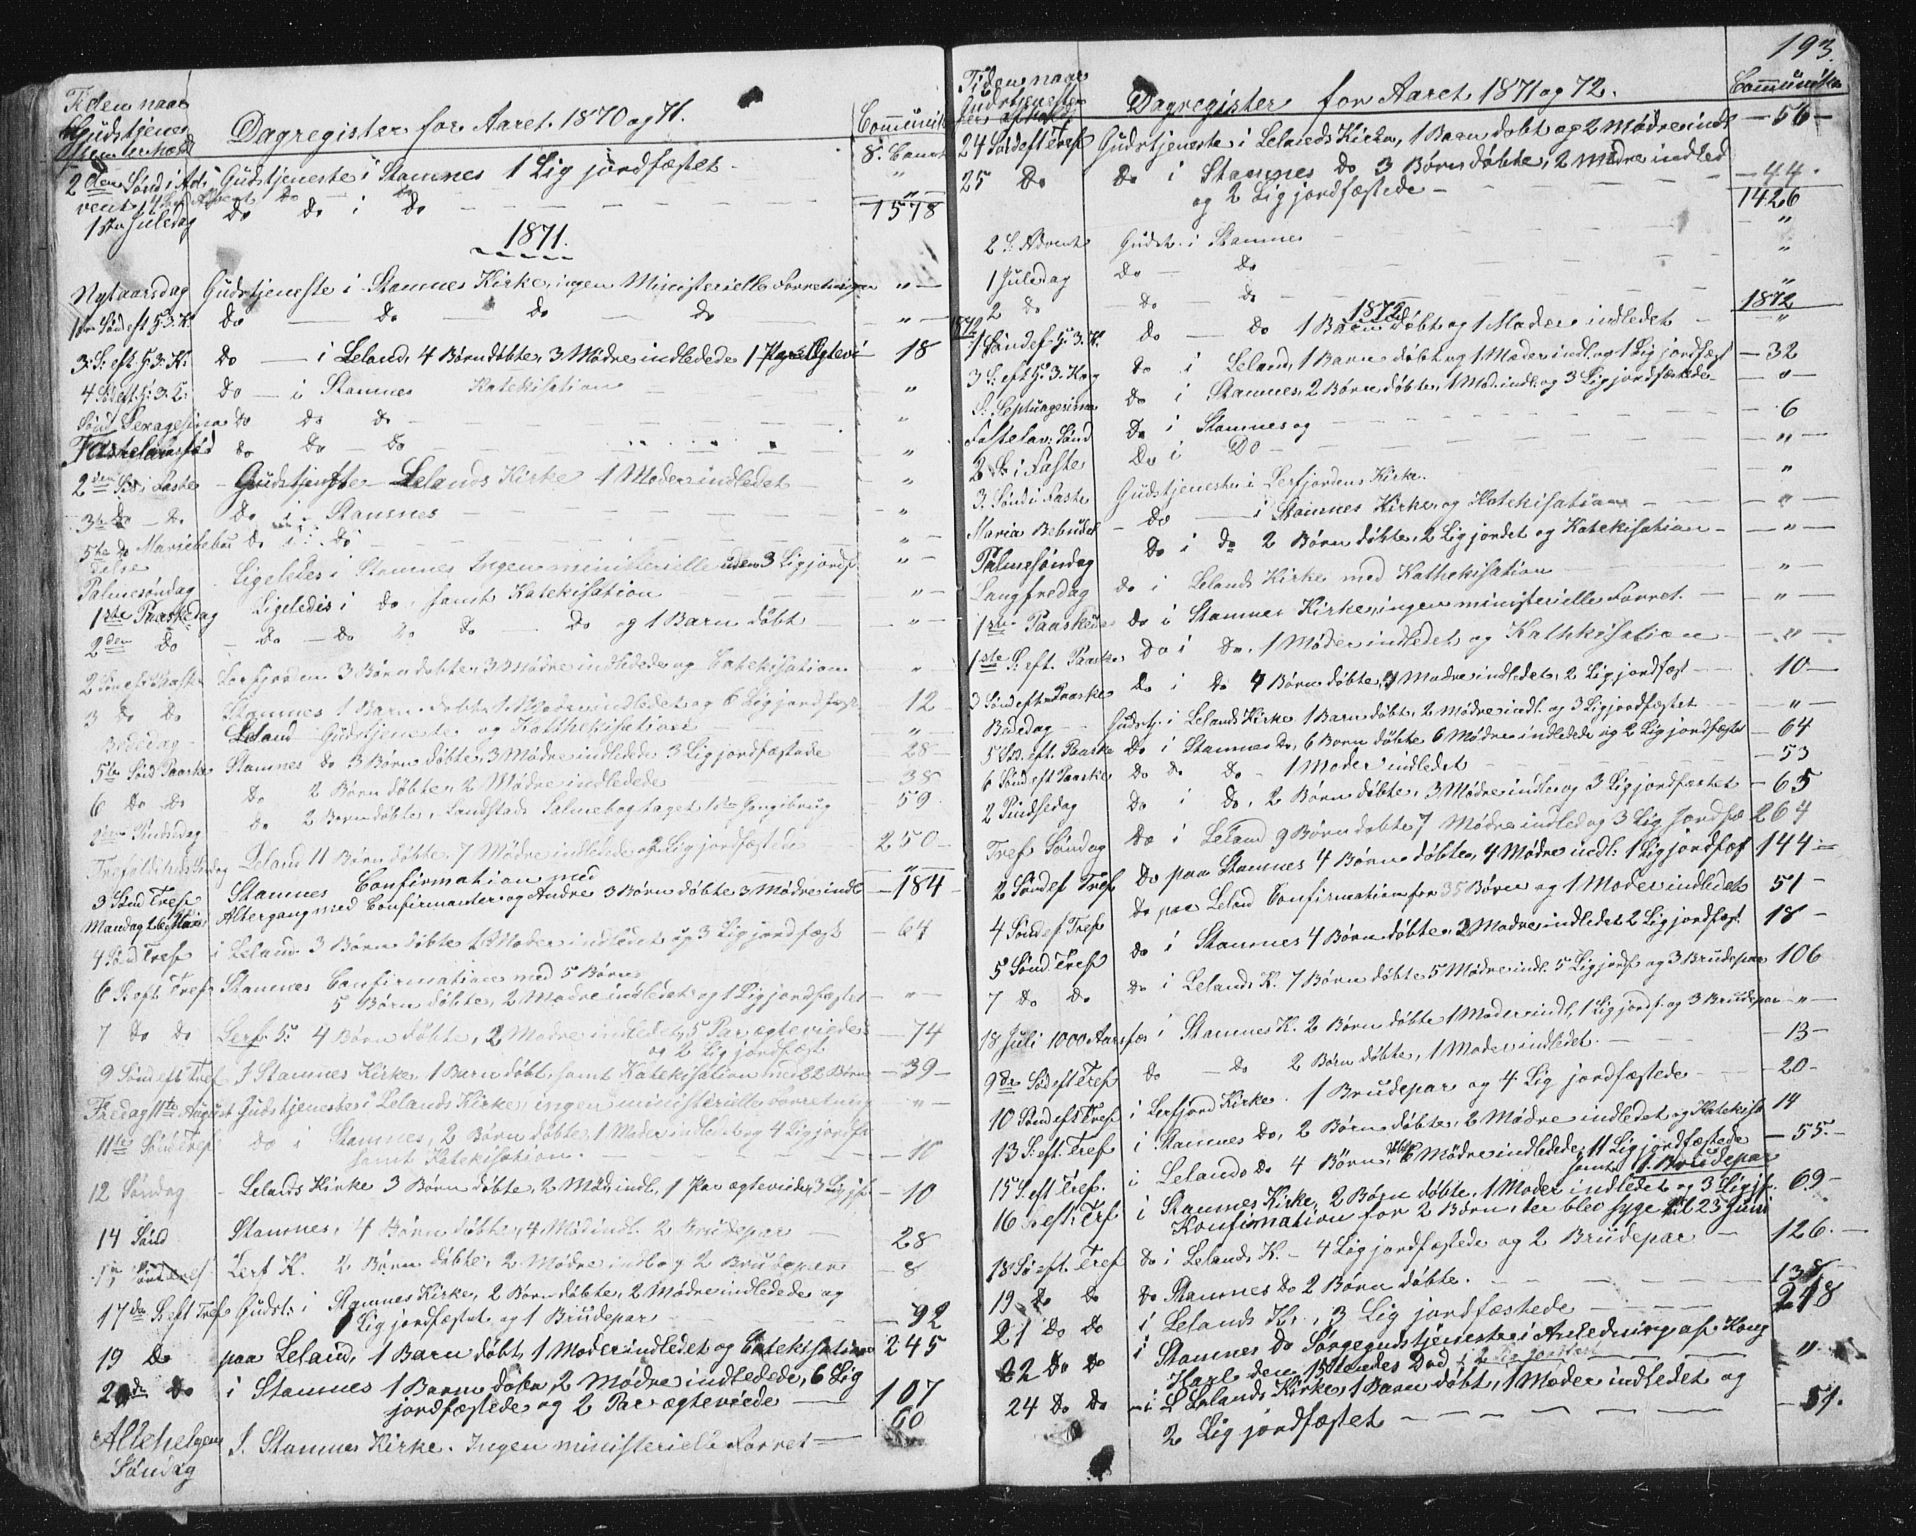 Tiden naar
Gudstjenes
ten er hold
Dagregister for Aaret 1870 og 71.
2den Sønd i Ad Gudstjeneste i Stamnes 1 Lig jordfæstet - "
vent, 4 Advent Do
1ste Juledag Do Do i Do 1578
1871.
Nytaarsdag Gudstjeneste i Stamnes Kirke, ingen Ministerielle Forretninger "
1ste Sønd eft H. 3. K. Do Do Do Do "
3: S: eft H: 3: K: Do i Leland, 4 Børn døbte, 3 Mødre indledede 1 Par 18
4 S eft. H: 3: K: Do i Stamnes Katekisation "
Sønd Sexagesima Do Do Do "
Fastelavns Do Do Do "
2den S: i Faste Gudstjeneste Lelands Kirke 1 Moder indledet "
3die Do Do Do i Stamnes "
5te Do Mariæbebu Do i Do "
delse
Palmesøndag Ligeledes i Stamnes Ingen ministerielle uden 3 Lig jordf. "
1ste Paaskedag Ligeledes i do samt Katekisation "
2den Do Do Do Do Do Do og 1 Barn døbt "
2 Søn eft Paaske Lerfjorden 3 Børn døbte, 3 Mødre indledede og Catekisation "
3 Do Do Stamnes 1 Barn døbt, 1 Moder indledet og 6 Lig jordfæst 12
Bededag Leland Gudstjeneste og Kathekisation "
5te Sønd Paaske Stamnes do 3 Børn døbte, 3 Mødre indledede 3 Lig jordfæstede 28
6 Do Do Do 2 Børn døbte, 2 Mødre indledede 38
2den Pindsedag Do 2 Børn døbte, Landstads Salmebog taget 1ste Gang i brug 59
Trefoldigheds Søndag Leland 11 Børn døbte 7 Mødre indledede og 2 Lig jordfæstede 250
3 Sønd Tref Stamnes Confirmation med "
Mandag 26 Altergang med Confirmanter og Andre 3 Børn døbte 3 Mødre indl 184
4 Sønd Tref i Leland 3 Børn døbte 1 Moder indledet og 3 Lig jordfæst 64
6 S: eft Tref Stamnes Confirmation med 5 Børn
5 Børn døbte, 2 Mødre indledet og 1 Lig jordfæstet "
7 Do Do Lerf: 5: 4 Børn døbte, 2 Mødre indledet, 5 Par ægteviede 74
og 2 Lig jordfæst
9 Sønd eft Tref I Stamnes Kirke, 1 Barn døbt samt Katekisation med 22 Børn 39
Fredag 11te August Gudstjeneste i Lelands Kirke, ingen ministerielle Forretning "
11te Sønd Tref do i Stamnes, 2 Børn døbte, 1 Moder indledet og 4 Lig jordfst
samt Katekisation. 10
12 Søndag Lelands Kirke 3 Børn døbte, 2 Mød indl, 1 Par ægteviede, 3 Lig jf. 10
14 Sønd Stamnes, 4 Børn døbte, 4 Mød indl. 2 Brudepar 28
Lerf K. 2 Børn døbte, 2 Mødre indl og 2 Brudepar 8
17de S eft Tref Gudst: i Stamnes Kirke, 2 Børn døbte, 2 Mødre indledede og
1 Lig jordfæstet, og 1 Brudepar 92
19 Do paa Leland, 1 Barn døbt, 1 Moder indledet og Catekisation 245
20de Do i Stamnes 1 Barn døbt, 2 Mødre indledede, 6 Lig
jordfæstede og 2 Par ægteviede 107
Allehelgens I. Stamnes Kirke. Ingen ministerielle Forret 60
Søndag
193
Tiden naar
Gudstjenesten
er afholdt
Dagregister for Aaret 1871 og 72.
24 Sønd eft Tref Gudstjeneste i Lelands Kirke, 1 Barn døbt og 2 Mødre indl 56
25 Do Do i Stamnes do 3 Børn døbte, 2 Mødre indled
og 2 Lig jordfæstede 44
1426
2 S: Advent Gudst. i Stamnes "
1 Juledag Do Do "
2 Do Do Do "
1872 1872 1872
1 Søndef H. 3. K. do Do 1 Barn døbt og 1 Moder indledet "
3 S: eft H: 3. Kog do i Leland, 1 Barn døbt og 1 Moder indl. og 1 Lig jordfæst 32
S: Septuagesima do i Stamnes, 2 Børn døbte, 1 Mod: indl. og 3 Lig jordfæstede "
Fastelav: Sønd Do i Stamnes og 6
2 S: i Faste Do i Do "
3. Sønd i Faste Gudstjeneste i Lerfjordens Kirke. "
Maria Bebudel Do i Stamnes Kirke, og Katekisation "
Palmesøndag Do i do 2 Børn døbte, 2 Lig jordet og Katekisation "
Langfredag do i Lelands Kirke med Kathekisation "
1ste Paaskeda do i Stamnes Kirke, ingen ministerielle Forret. "
1ste S: eft. Paaske do i do. 1 Moder indledet og Kathkisation "
3 Sønd eft Paaske Do i do 4 Børn døbte, 3 Mødre indledet, 2 Lig jordfæst 10
Bededag Gudstj: i Lelands Kirke 1 Barn døbt, 2 Mødre indl. og 3 Lig jordfæstet "
5 Sd. eft. Paaske Do i Stamnes Do, 6 Børn døbte 6 Mødre indledede og 2 Lig jordfæst 64
6 Sønd eft Paaske Do Do Do 1 Moder indledet 53
2 Pindsedag Do i Do, 2 Børn døbte, 3 Mødre indle og 3 Lig jordfæstet 65
Tref Søndag Do i Leland 9 Børn døbte 7 Mødre indled og 3 Lig Jordfæ 264
2 Sønd ef Tref Do paa Stamnes 4 Børn døbte, 4 Mødre indl: 1 Lig jordfæst 144
4 Sønd ef Tref do paa Leland Confirmation for 35 Børn og 1 Moder indledet 51
5 Sønd. Tref do i Stamnes 4 Børn døbte, 3 Mødre indledet 2 Lig jordfæst 18
7 Do Do do i Lelands K. 7 Børn døbte 5 Mødre indl: 5 Lig jordf og 3 Brudepar 106
18 Juli 1000 Aarsfæs i Stamnes K. 2 Børn døbte 1 Moder indl, 1 Lig jordf. og 3 Brudepar "
9de Sd eft Tref do Do 2 Børn døbte, 1 Moder indledet. 13
10 Sønd eft Tref i Lerfjord Kirke. 1 Brudepar og 4 Lig jordfæstede 20
13 S: eft. Tref i Stamnes Do, 2 Børn døbte, 2 Mødre indledet og Katekisa 14
15 S. eft Tref. i Lelands do 4 Børn døbte, 6 Mødre indledede, 11 Lig jordfæstede 55
samt 1 Brudepar
16 S: eft: Tref i Stamnes Kirke, 2 Børn døbte, 1 Moder indledet og 3 Lig jf. 69
Konfirmation for 2 Børn, der blev syge til 23 Juni
18 Sø eft. Tref do i Lelands K. 4 Lig jordfæstede og 2 Brudepar 126
19 do do do Stamnes Do 2 Børn døbte. 138
21 Do Do i Lelands K., 3 Lig jordfæstede 218
22 Do Do i Stamnes do Sørgegudstjeneste i Anledning af Kong
Karl den 15tendes Død "
24 Do Do i Lelands Kirke, 1 Barn døbt, 1 Moder indledet og
2 Lig jordfæstet 51.